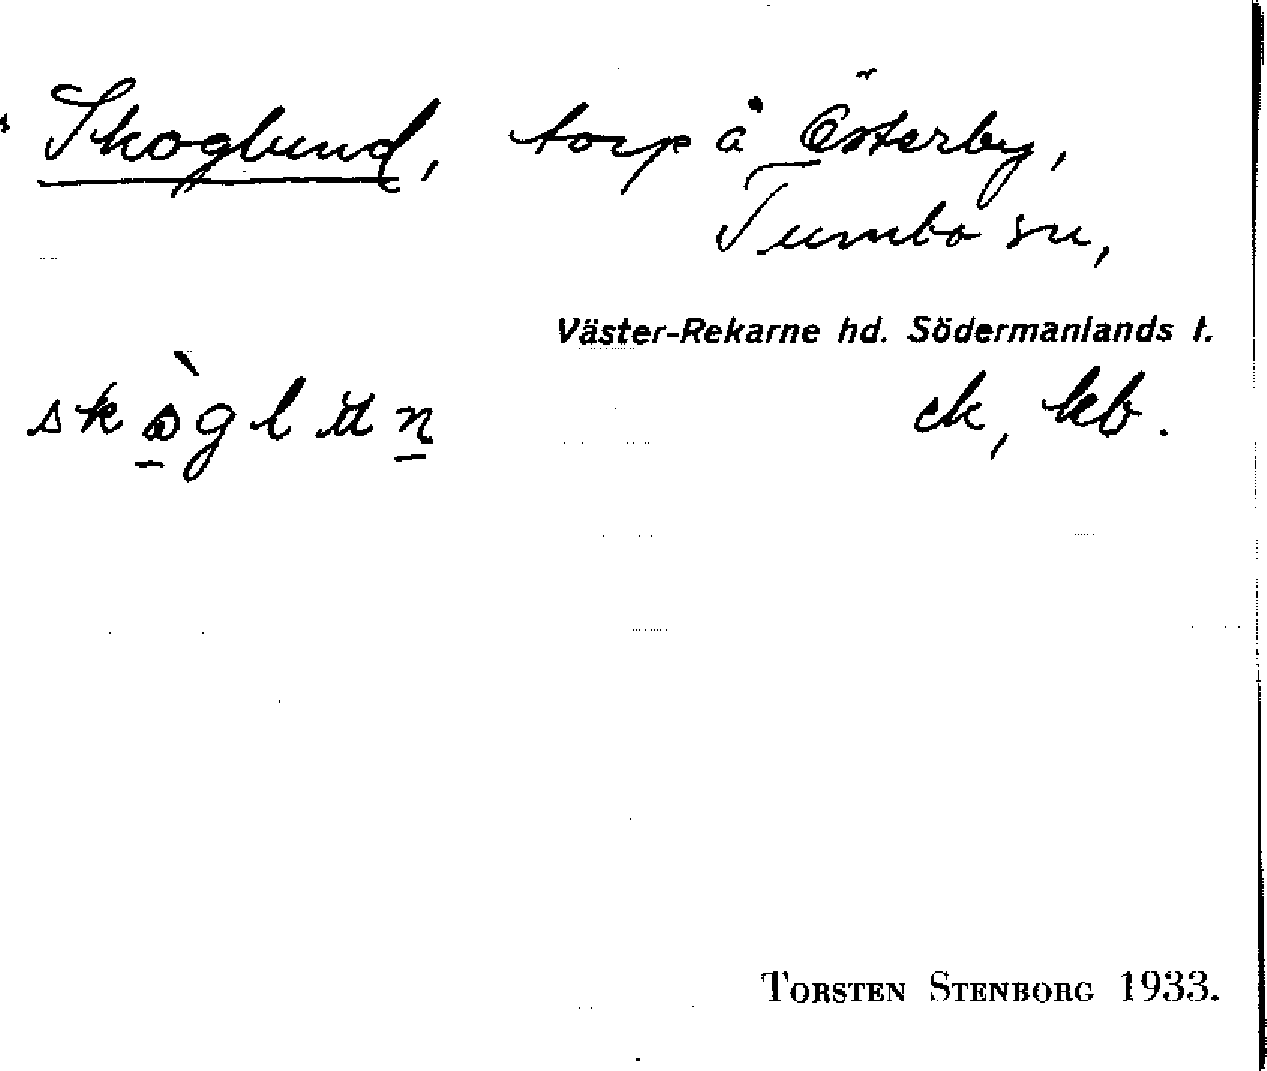 Skoglund, torp å Österby,
Tumbo sn,
Väster-Rekarne hd. Södermanlands l.
ek, kb.
TORSTEN STENBORG 1933.